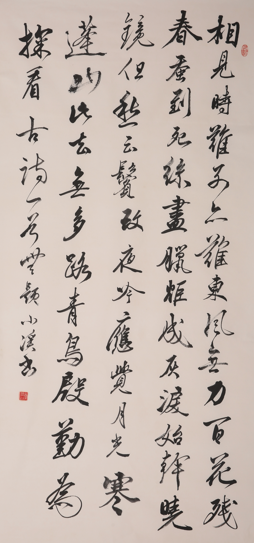 相見時難別亦難東風無力百花残
春蚕到死絲盡蠟炬成灰淚始幹曉
鏡但愁云鬢改夜吟應覺月光寒
蓬山此去無多路青鳥殷勤為
探看古詩一首小溪書